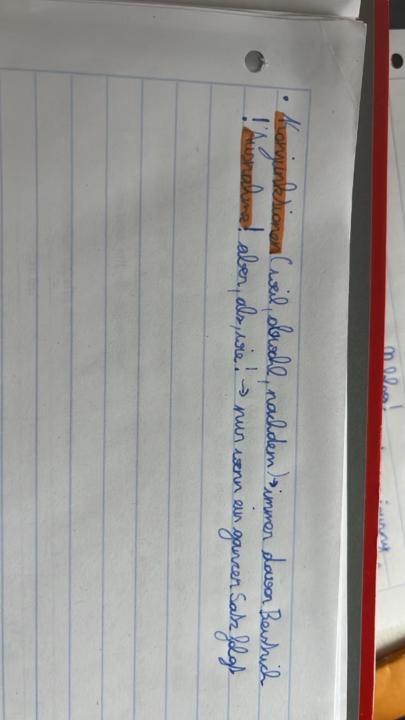 • Konjunktionen (weil, obwohl, nachdem) → immer davor Beistrich
! Ausnahme! aber, als, wie! → nur wenn ein ganzer Satz folgt